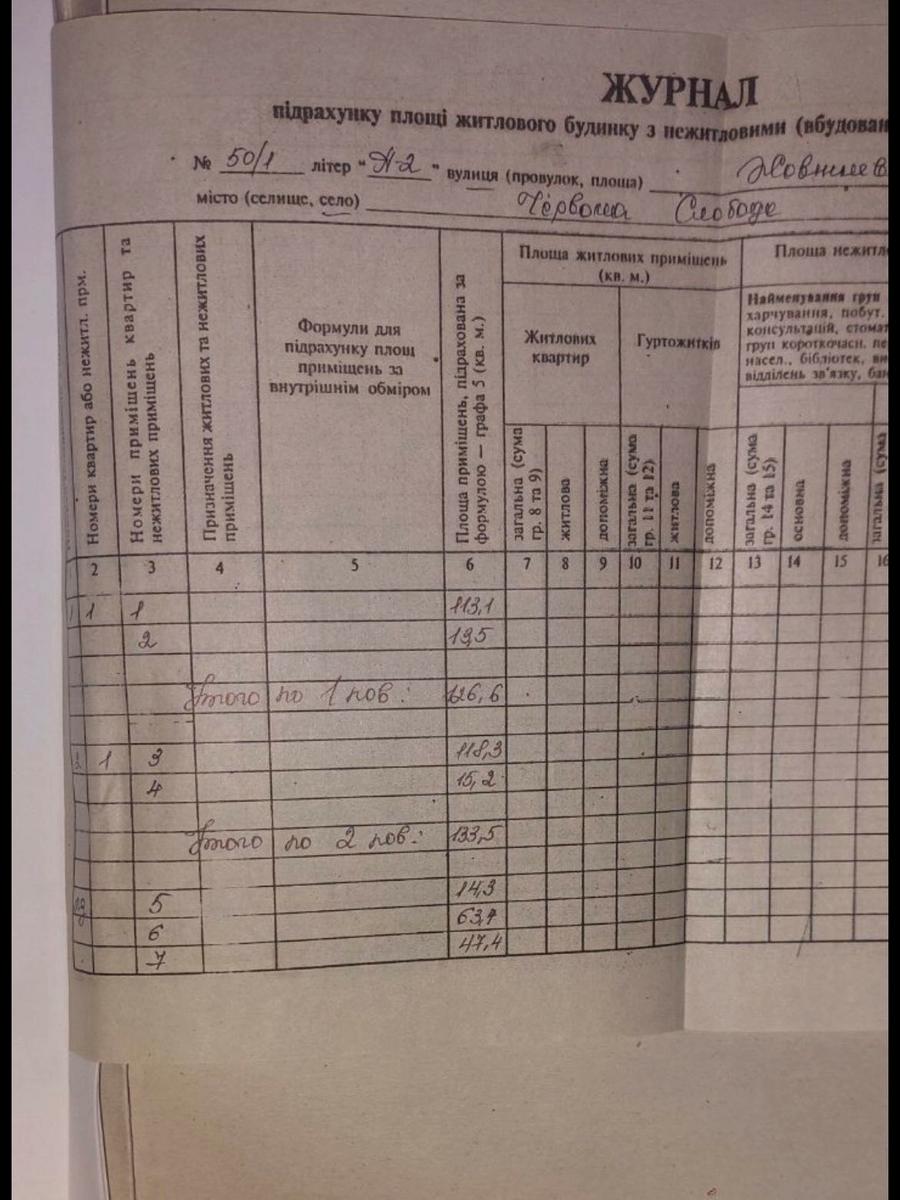 ЖУРНАЛ
підрахунку площі житлового будинку з нежитловими (вбудован
№ 50/1 літер "А-2" вулиця (провулок, площа) Жовтнев
місто (селище, село) Червона Слобода
Номери квартир або нежитл. прм.
Номери приміщень квартир та
нежитлових приміщень
Призначення житлових та нежитлових
приміщень
Формули для
підрахунку площ
приміщень за
внутрішнім обміром
Площа приміщень, підрахована за
формулою — графа 5 (кв. м.)
Площа житлових приміщень
(кв. м.)
Площа нежитл
Житлових
квартир
Гуртожитків
Найменування груп
харчування, побут.
консультацій, стомат
груп короткочасн. пе
насел., бібліотек, ви
відділень зв'язку, бан
загальна (сума
гр. 8 та 9)
житлова
допоміжна
загальна (сума
гр. 11 та 12)
житлова
допоміжна
загальна (сума
гр. 14 та 15)
основна
допоміжна
загальна (сума
2 3 4 5 6 7 8 9 10 11 12 13 14 15 16
1 1 1 113,1
2 13,5
Итого по 1 пов: 126,6
2 1 3 118,3
4 15,2
Итого по 2 пов: 133,5
5 14,3
6 63,7
7 47,4